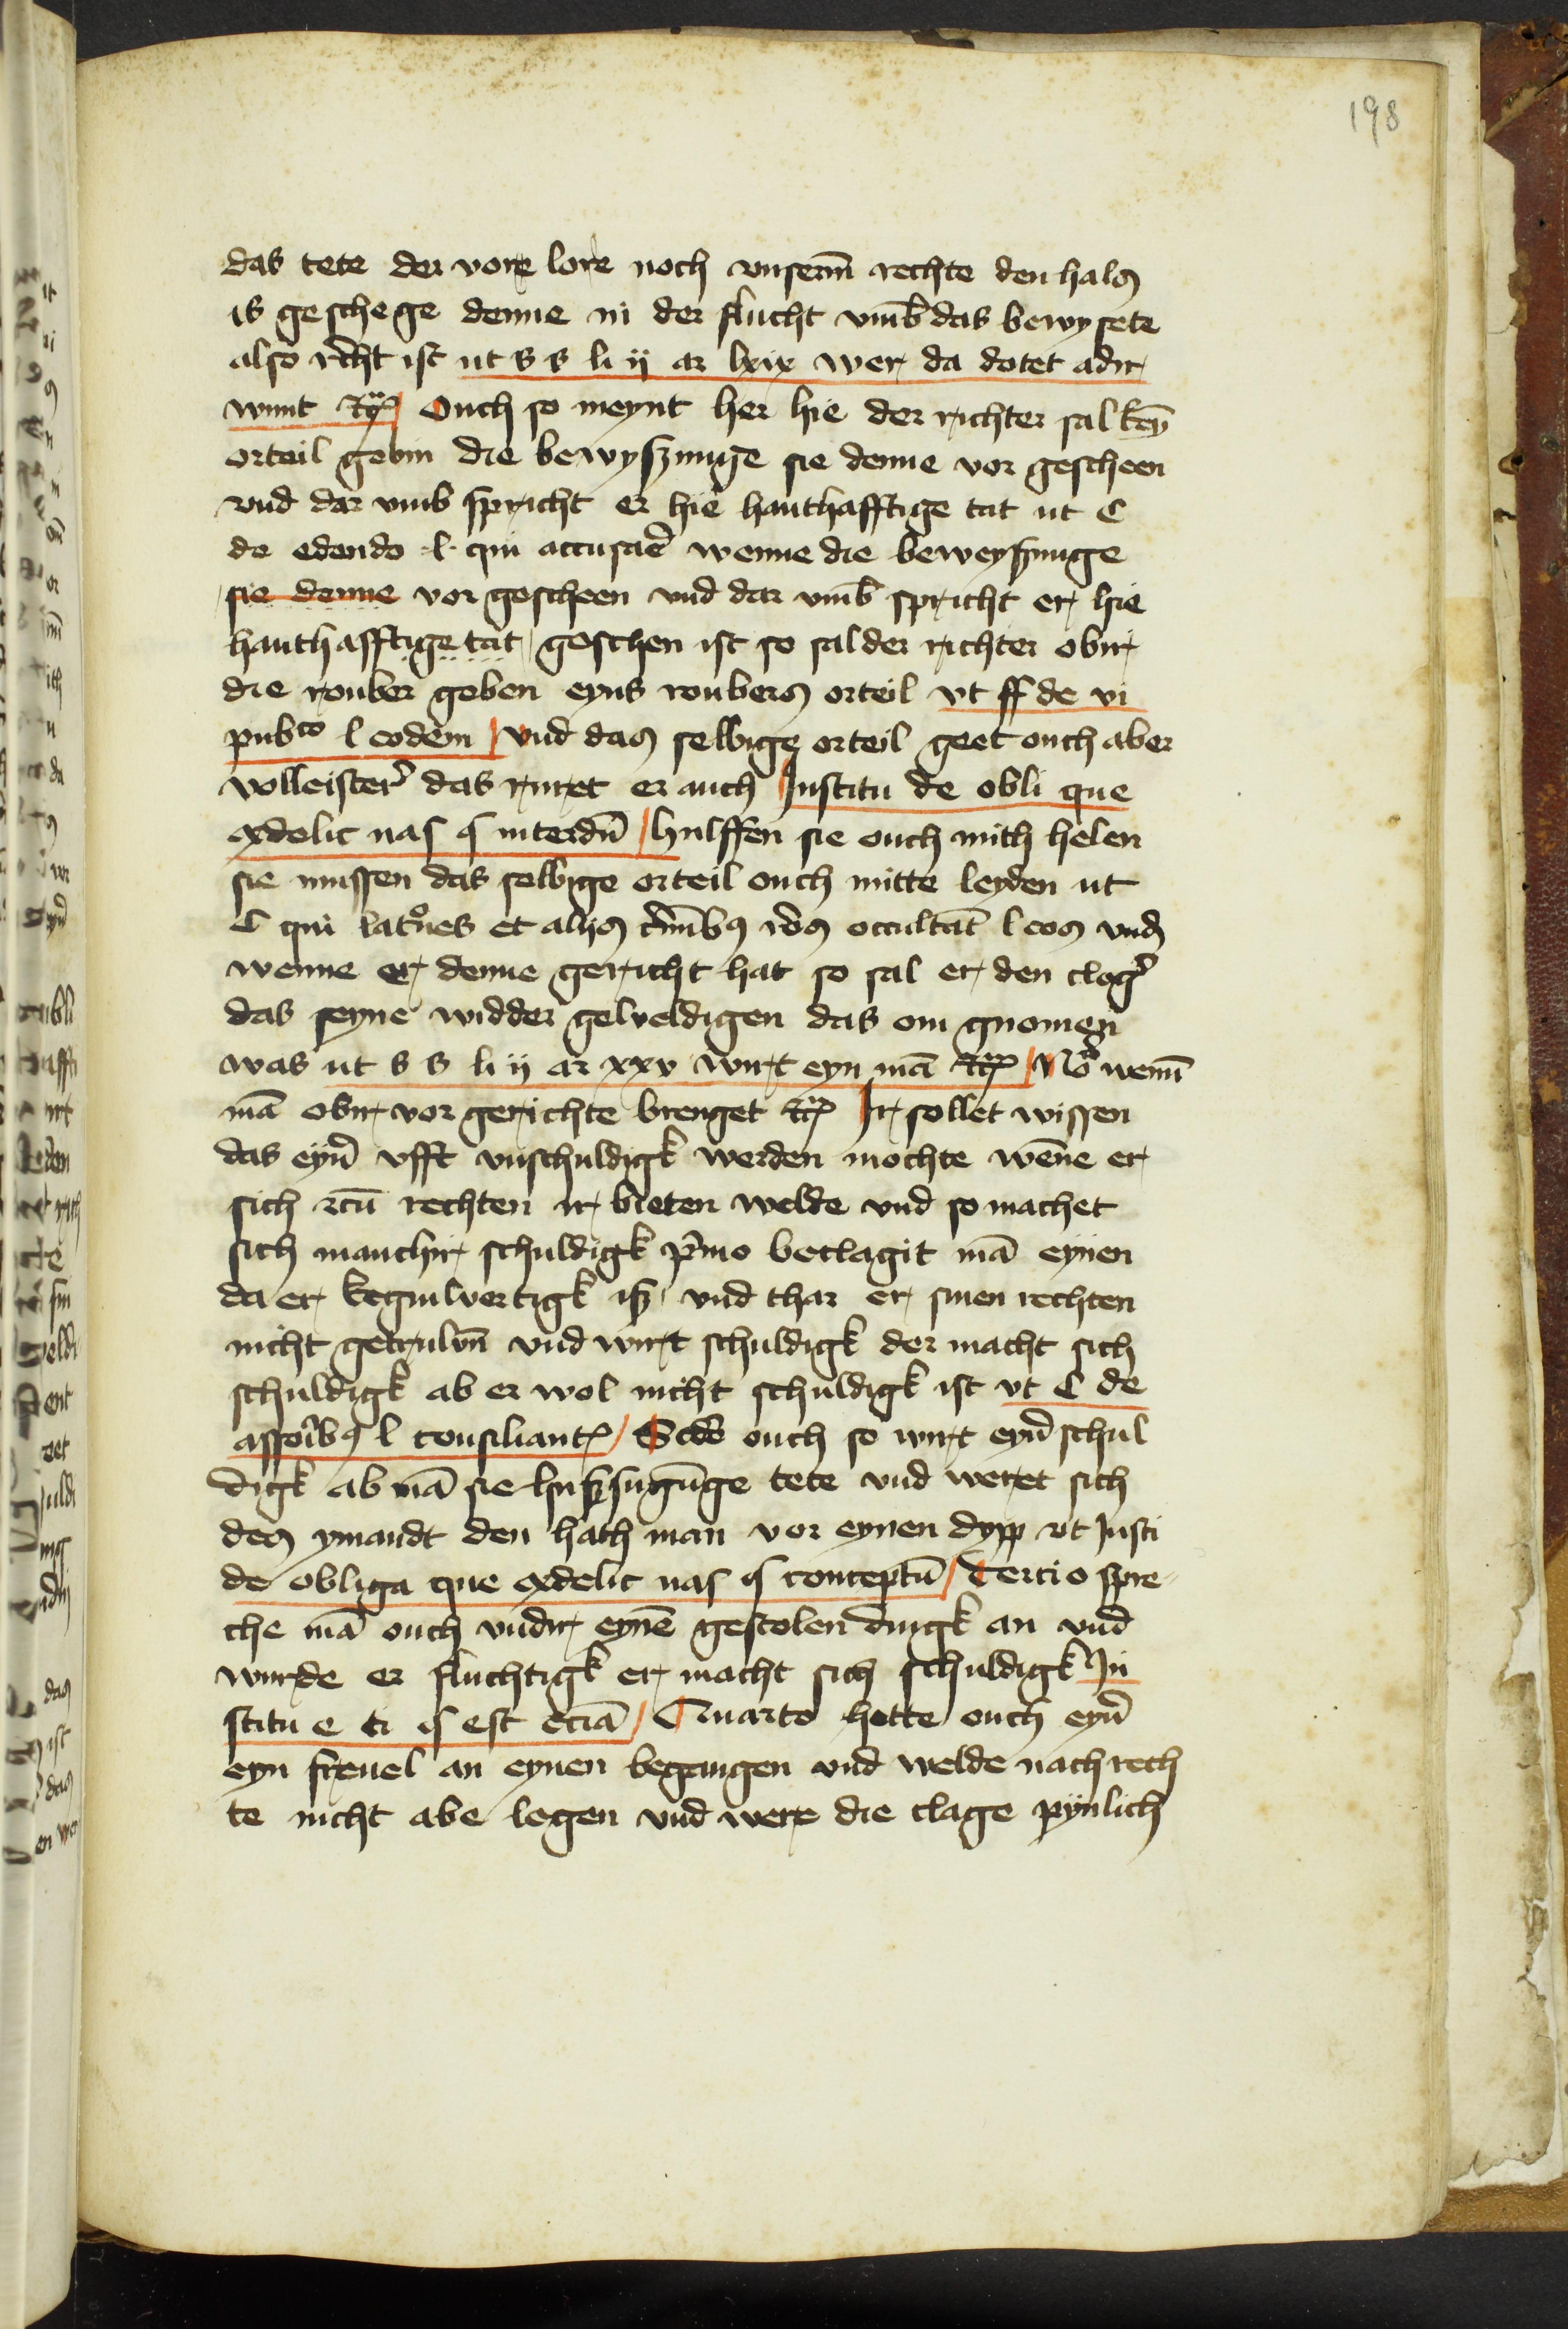 198
das tete der vore lore noch vnserm̄ rechte den hals
is geschege denne in der flucht vmb̄ das bewysete
also recht ist ut s s li ij ar lxix wer da dotet adir
wunt ꝛc Ouch so meynt her hie der richter sal keȳ
orteil gebin die bewyszunge sie denne vor gescheen
vnd dar vmb spricht er hie hanthafftige tat ut C
de edendo ·l· qui accusare wenne die beweyszunge
sie denne vor gescheen vnd dar vmb̄ spricht er hie
hanthafftige tat geschen ist so sal der richter obir
die rouber geben eyns roubers orteil vt ff de vi
pubco l eodem vnd das selbige orteil geet ouch aber
volleister das ruret er auch Institu de obli que
exdelic nas § interdū hulffen sie ouch mith helen
sie mussen das selbige orteil ouch mitte leyden ut
C qui latrōes et alijs occultāt l eos vnd
wenne er denne gericht hat so sal er den cloger
das seyne widder geweldigen das om gnomen
was ut s s li ij ar xxv wirt eyn mā ꝛc No wenn̄
mā obir vor gerichte brenget ꝛc Ir sollet wissen
das eyner vfft vnschuldigk werden mochte wēne er
sich zcū rechten ir bieten welde vnd so machet
sich manchir schuldigk p̄mo beclagit mā eynen
da er keginwertigk isz vnd thar er sinen rechten
nicht getruwen vnd wirt schuldigk der macht sich
schuldigk ab er wol nicht schuldigk ist vt C de
assoībꝰ l consiliant Scdo ouch so wirt eyner schul
digk ab mā sie huszsugūge tete vnd weret sich
des ymandt den hath man vor eynen dyp vt Insti
de obliga que exdelic nas § conceptū Tercio spre-
che mā ouch vndir eynē gestolen dingk an vnd
wurde er fluchtigk er macht sich schuldigk In
stitu e ti § est eciā Quarto hette ouch eyner
eyn freuel an eynen begangen vnd welde nach rech
te nicht abe legen vnd were die clage pynlich